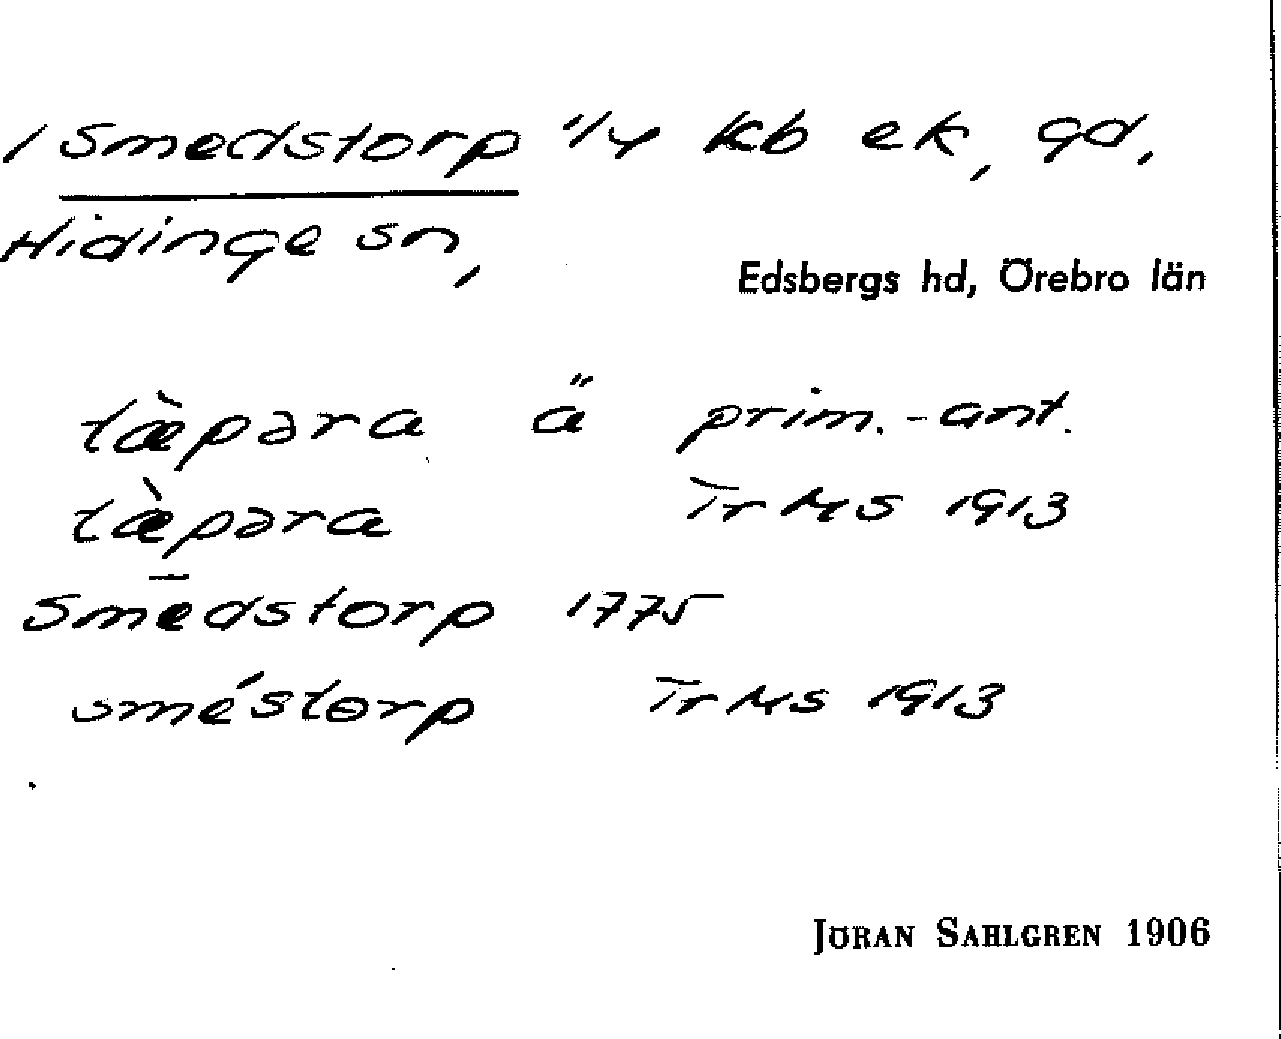 1 Smedstorp 1/4 kb ek, gd,
Hidinge sn,
Edsbergs hd, Örebro län
tæ̀pəra ä prim.-ant.
tæ̀pəra Tr Ms 1913
Smedstorp 1775
sméstorp Tr Ms 1913
JÖRAN SAHLGREN 1906